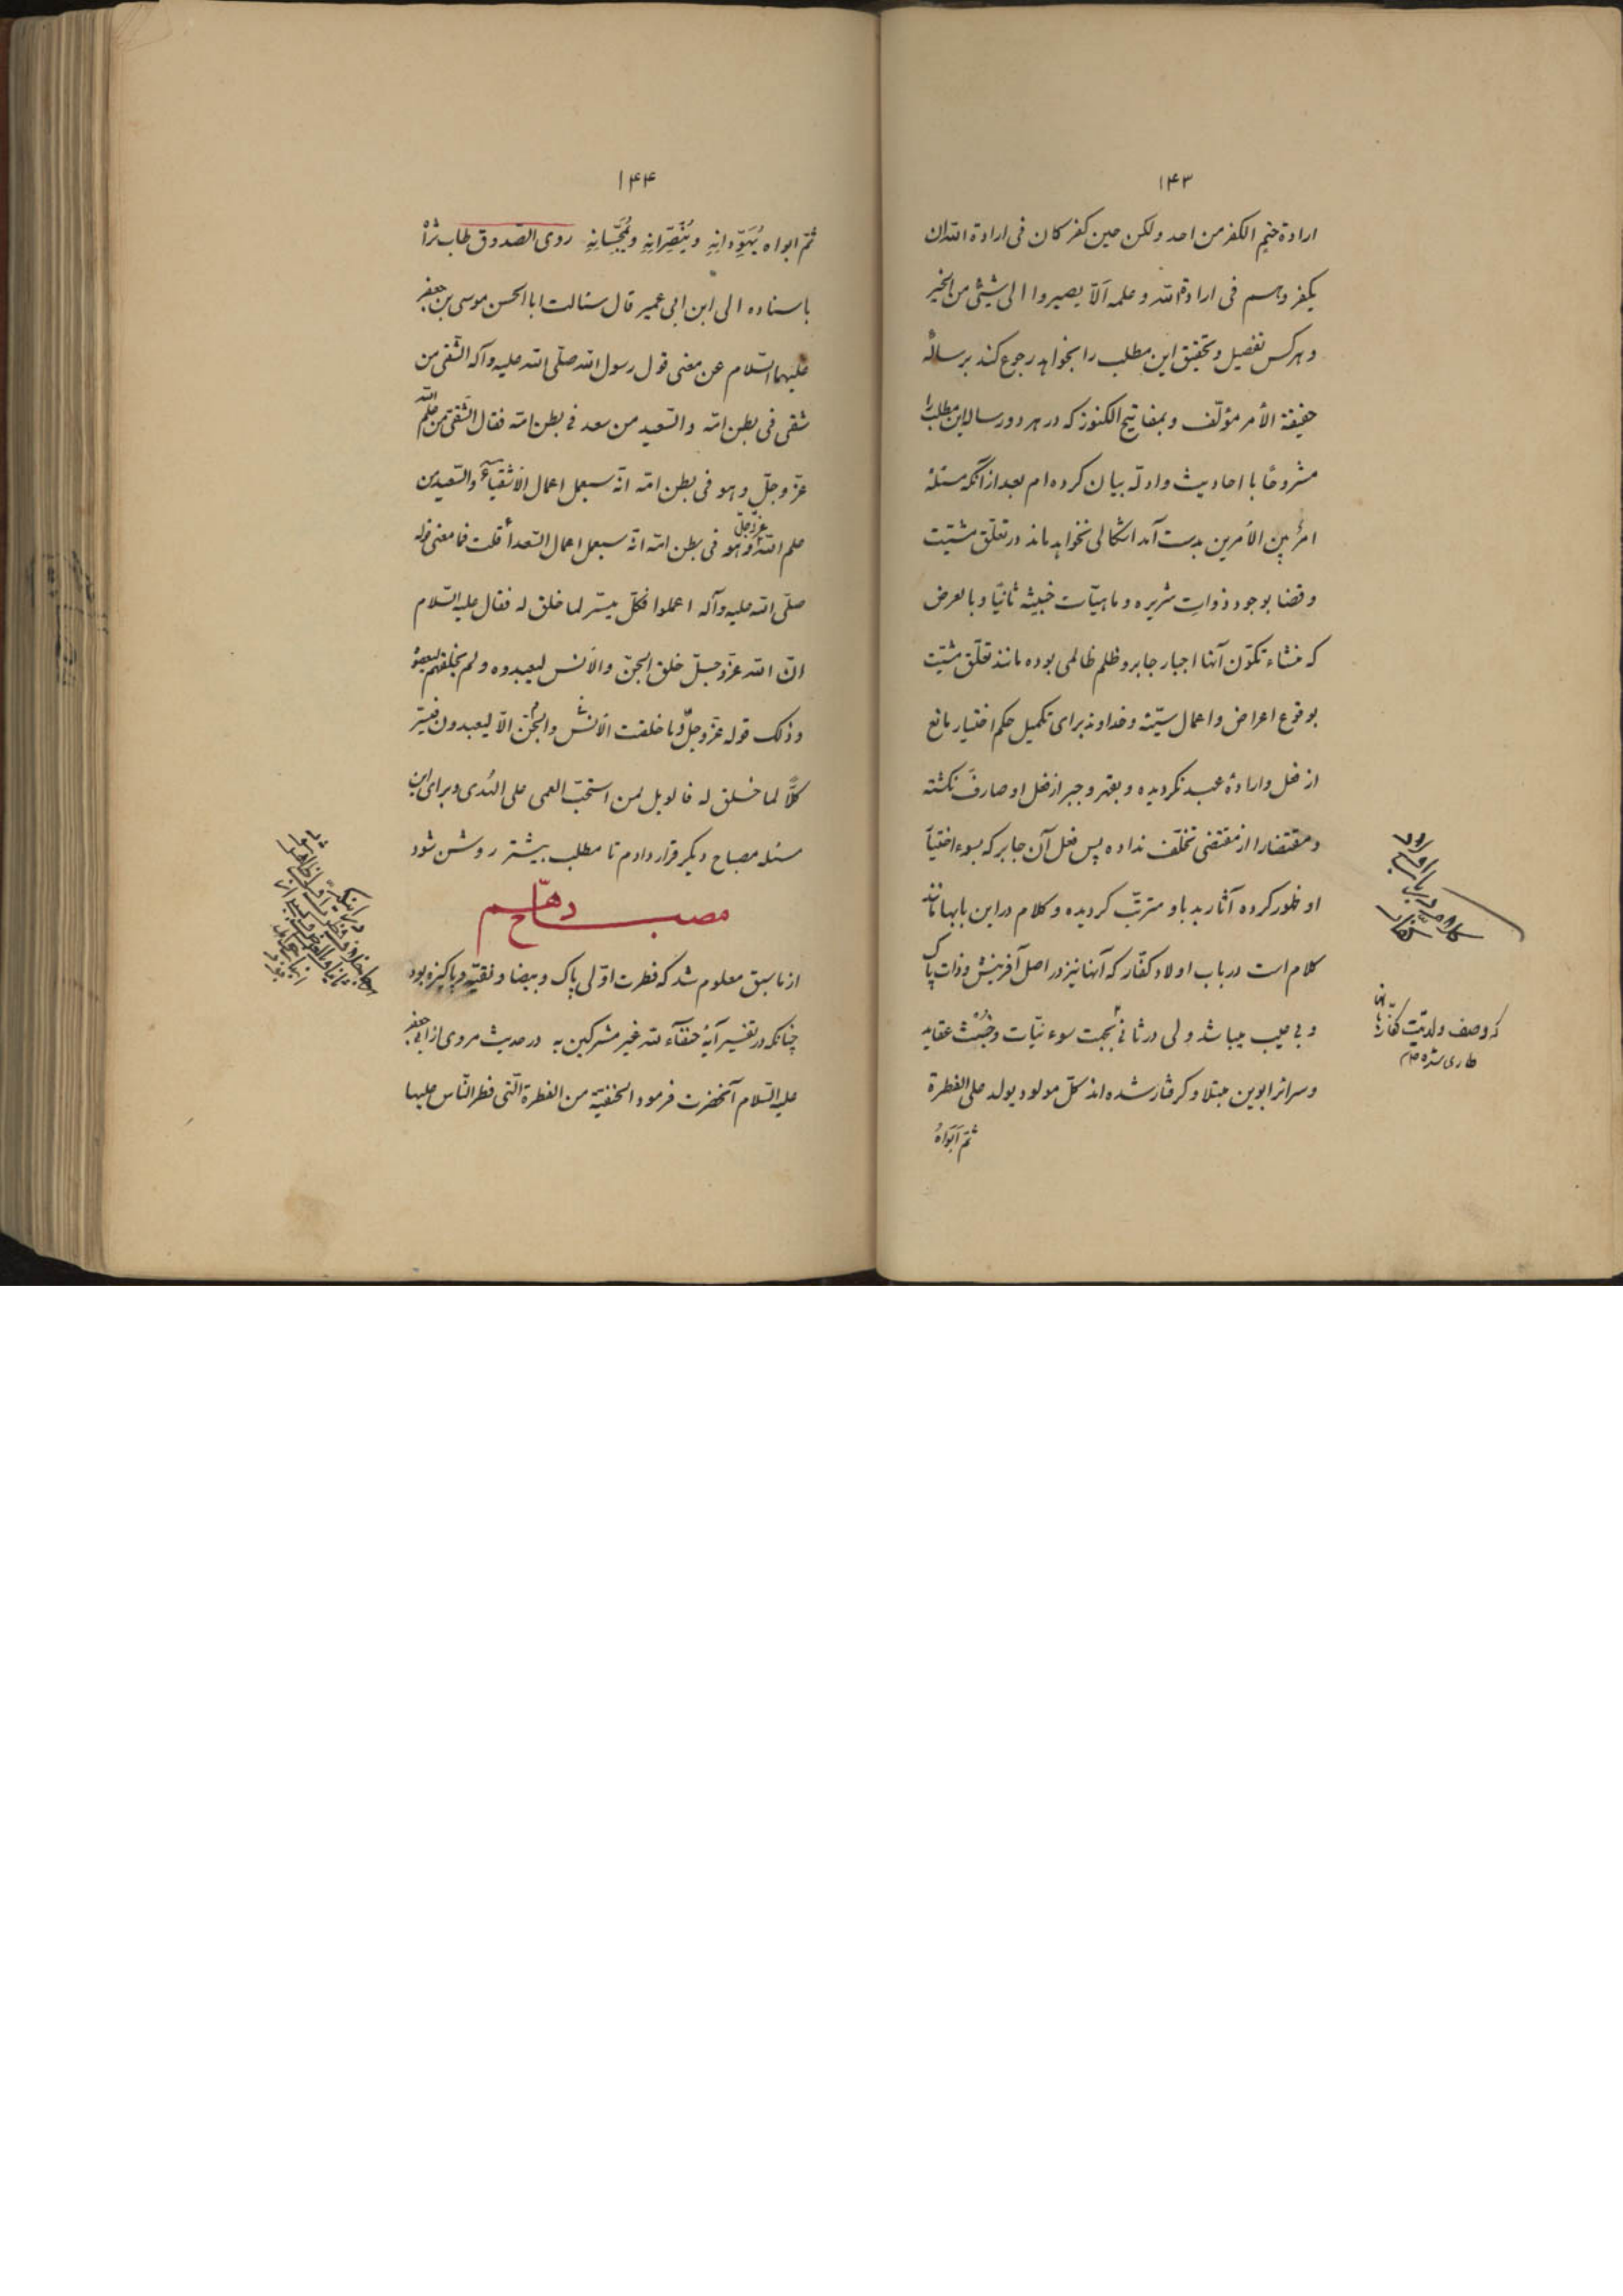 ۱۴۳
ارادة حتم الکفر من احد ولکن حین کفر کان فی ارادة الله ان
یکفر وهم فی ارادة الله و علمه ألّا یصیروا الی شیئی من الخیر
و هر کس تفصیل و تحقیق این مطلب را بخواهد رجوع کند برسالهٔ
حقیقة الأمر مؤلّف و بمفاتیح الکنوز که در هر دو رساله این مطلب را
مشروحًا با احادیث و ادلّه بیان کرده‌ام بعد از آنکه مسئله
امرٌ بین الأمرین بدست آمد اشکالی نخواهد ماند در تعلّق مشیّت
و قضا بوجود ذوات شریره و ماهیّات خبیثه ثانیًا و بالعرض
که منشاء تکوّن آنها اجبار جابر و ظلم ظالمی بوده مانند تعلّق مشیّت
بوقوع اعراض و اعمال سیّئه و خداوند برای تکمیل حکم اختیار مانع
از فعل و ارادهٔ عبد نگردیده و بقهر و جبر از فعل او صارف نگشته
و مقتضا را از مقتضی تخلّف نداده پس فعل آن جابر که بسوء اختیار
او ظهور کرده آثار بد باو مترتّب گردیده و کلام در این بابها مانند
کلام است در باب اولاد کفّار که آنها نیز در اصل آفرینش و ذات پاک
و بی عیب میباشد ولی در ثانی بجهت سوء نیّات و خُبث عقاید
و سرائر ابوین مبتلا و گرفتار شده‌اند کلّ مولود یولد علی الفطرة
ثمّ أبَوَاهُ
که وصف ولدیّت کفّار بآنها
طاری شده
۱۴۴
ثمّ ابواه یُهَوِّدانِهِ و یُنَصِّرانِهِ و یُمَجِّسانِهِ روی الصّدوق طاب ثراه
باسناده الی ابن ابی عمیر قال سئالت ابا الحسن موسی بن جعفر
علیهما السّلام عن معنی قول رسول الله صلّی الله علیه وآله الشّقی من
شقی فی بطن امّه والسّعید من سعد فی بطن امّه فقال الشّقی من علم الله
عزّ وجلّ وهو فی بطن امّه انّه سیعمل اعمال الأشقیاء والسّعید من
علم الله عزّ وجلّ وهو فی بطن امّه انّه سیعمل اعمال السّعدأ قلت فما معنی قوله
صلّی الله علیه وآله اعملوا فکلّ میسّر لما خلق له فقال علیه السّلام
انّ الله عزّ وجلّ خلق الجنّ والأنس لیعبدوه ولم یخلقهم لیعصوه
وذلک قوله عزّ وجلّ وما خلقت الأنس والجنّ الّا لیعبدون فیسّر
کلًّا لما خلق له فالویل لمن استحبّ العمی علی الهُدی و برای این
مسئله مصباح دیگر قرار دادم تا مطلب بیشتر روشن شود
مصباح دهّم
از ماسبق معلوم شد که فطرت اوّلی پاک و بیضا و نقیّه و پاکیزه بود
چنانکه در تفسیر آیهٔ حنفآء لله غیر مشرکین به در حدیث مروی از ابی جعفر
علیه السّلام آنحضرت فرمود الحنفیّة من الفطرة الّتی فطر النّاس علیها